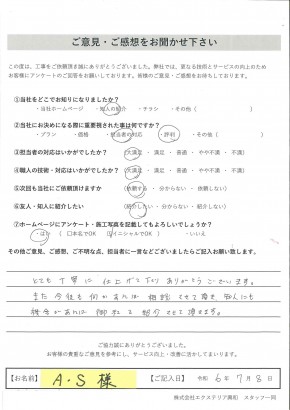 ご意見・ご感想をお聞かせ下さい
この度は、工事をご依頼頂き誠にありがとうございました。弊社では、更なる技術とサービスの向上のため
お客様にアンケートのご回答をお願いしております。皆様のご意見・ご感想をお待ちしております。
①当社をどこでお知りになりましたか?
・当社ホームページ ・知人の紹介 ・チラシ ・その他( )
②当社にお決めになる際に重要視された事は何ですか?
・プラン ・価格 ・担当者の対応 ・評判 ・その他( )
③担当者の対応はいかがでしたか? (大満足 ・ 満足 ・ 普通 ・ やや不満 ・ 不満)
④職人の技術・対応はいかがでしたか? (大満足 ・ 満足 ・ 普通 ・ やや不満 ・ 不満)
⑤次回も当社にご依頼頂けますか (依頼する ・ 分からない ・ 依頼しない)
⑥友人・知人に紹介したい (紹介したい ・ 分からない ・ 紹介しない)
⑦ホームページにアンケート・施工写真を記載してもよろしいでしょうか?
・はい ( 本名でOK イニシャルでOK ) ・いいえ
その他ご意見、ご感想、ご不明な点、担当者に一言などございましたらご記入お願い致します。
とても丁寧に仕上げて下さりありがとうございます。
また今後も何かあれば相談させて頂き、知人にも
機会があれば御社を紹介させて頂きます。
ご協力誠にありがとうございました。
お客様の貴重なご意見を参考にし、サービス向上・改善に活かしてまいります。
【お名前】 A・S 様 【ご記入日】 令和 6 年 7 月 8 日
株式会社エクステリア興和 スタッフ一同